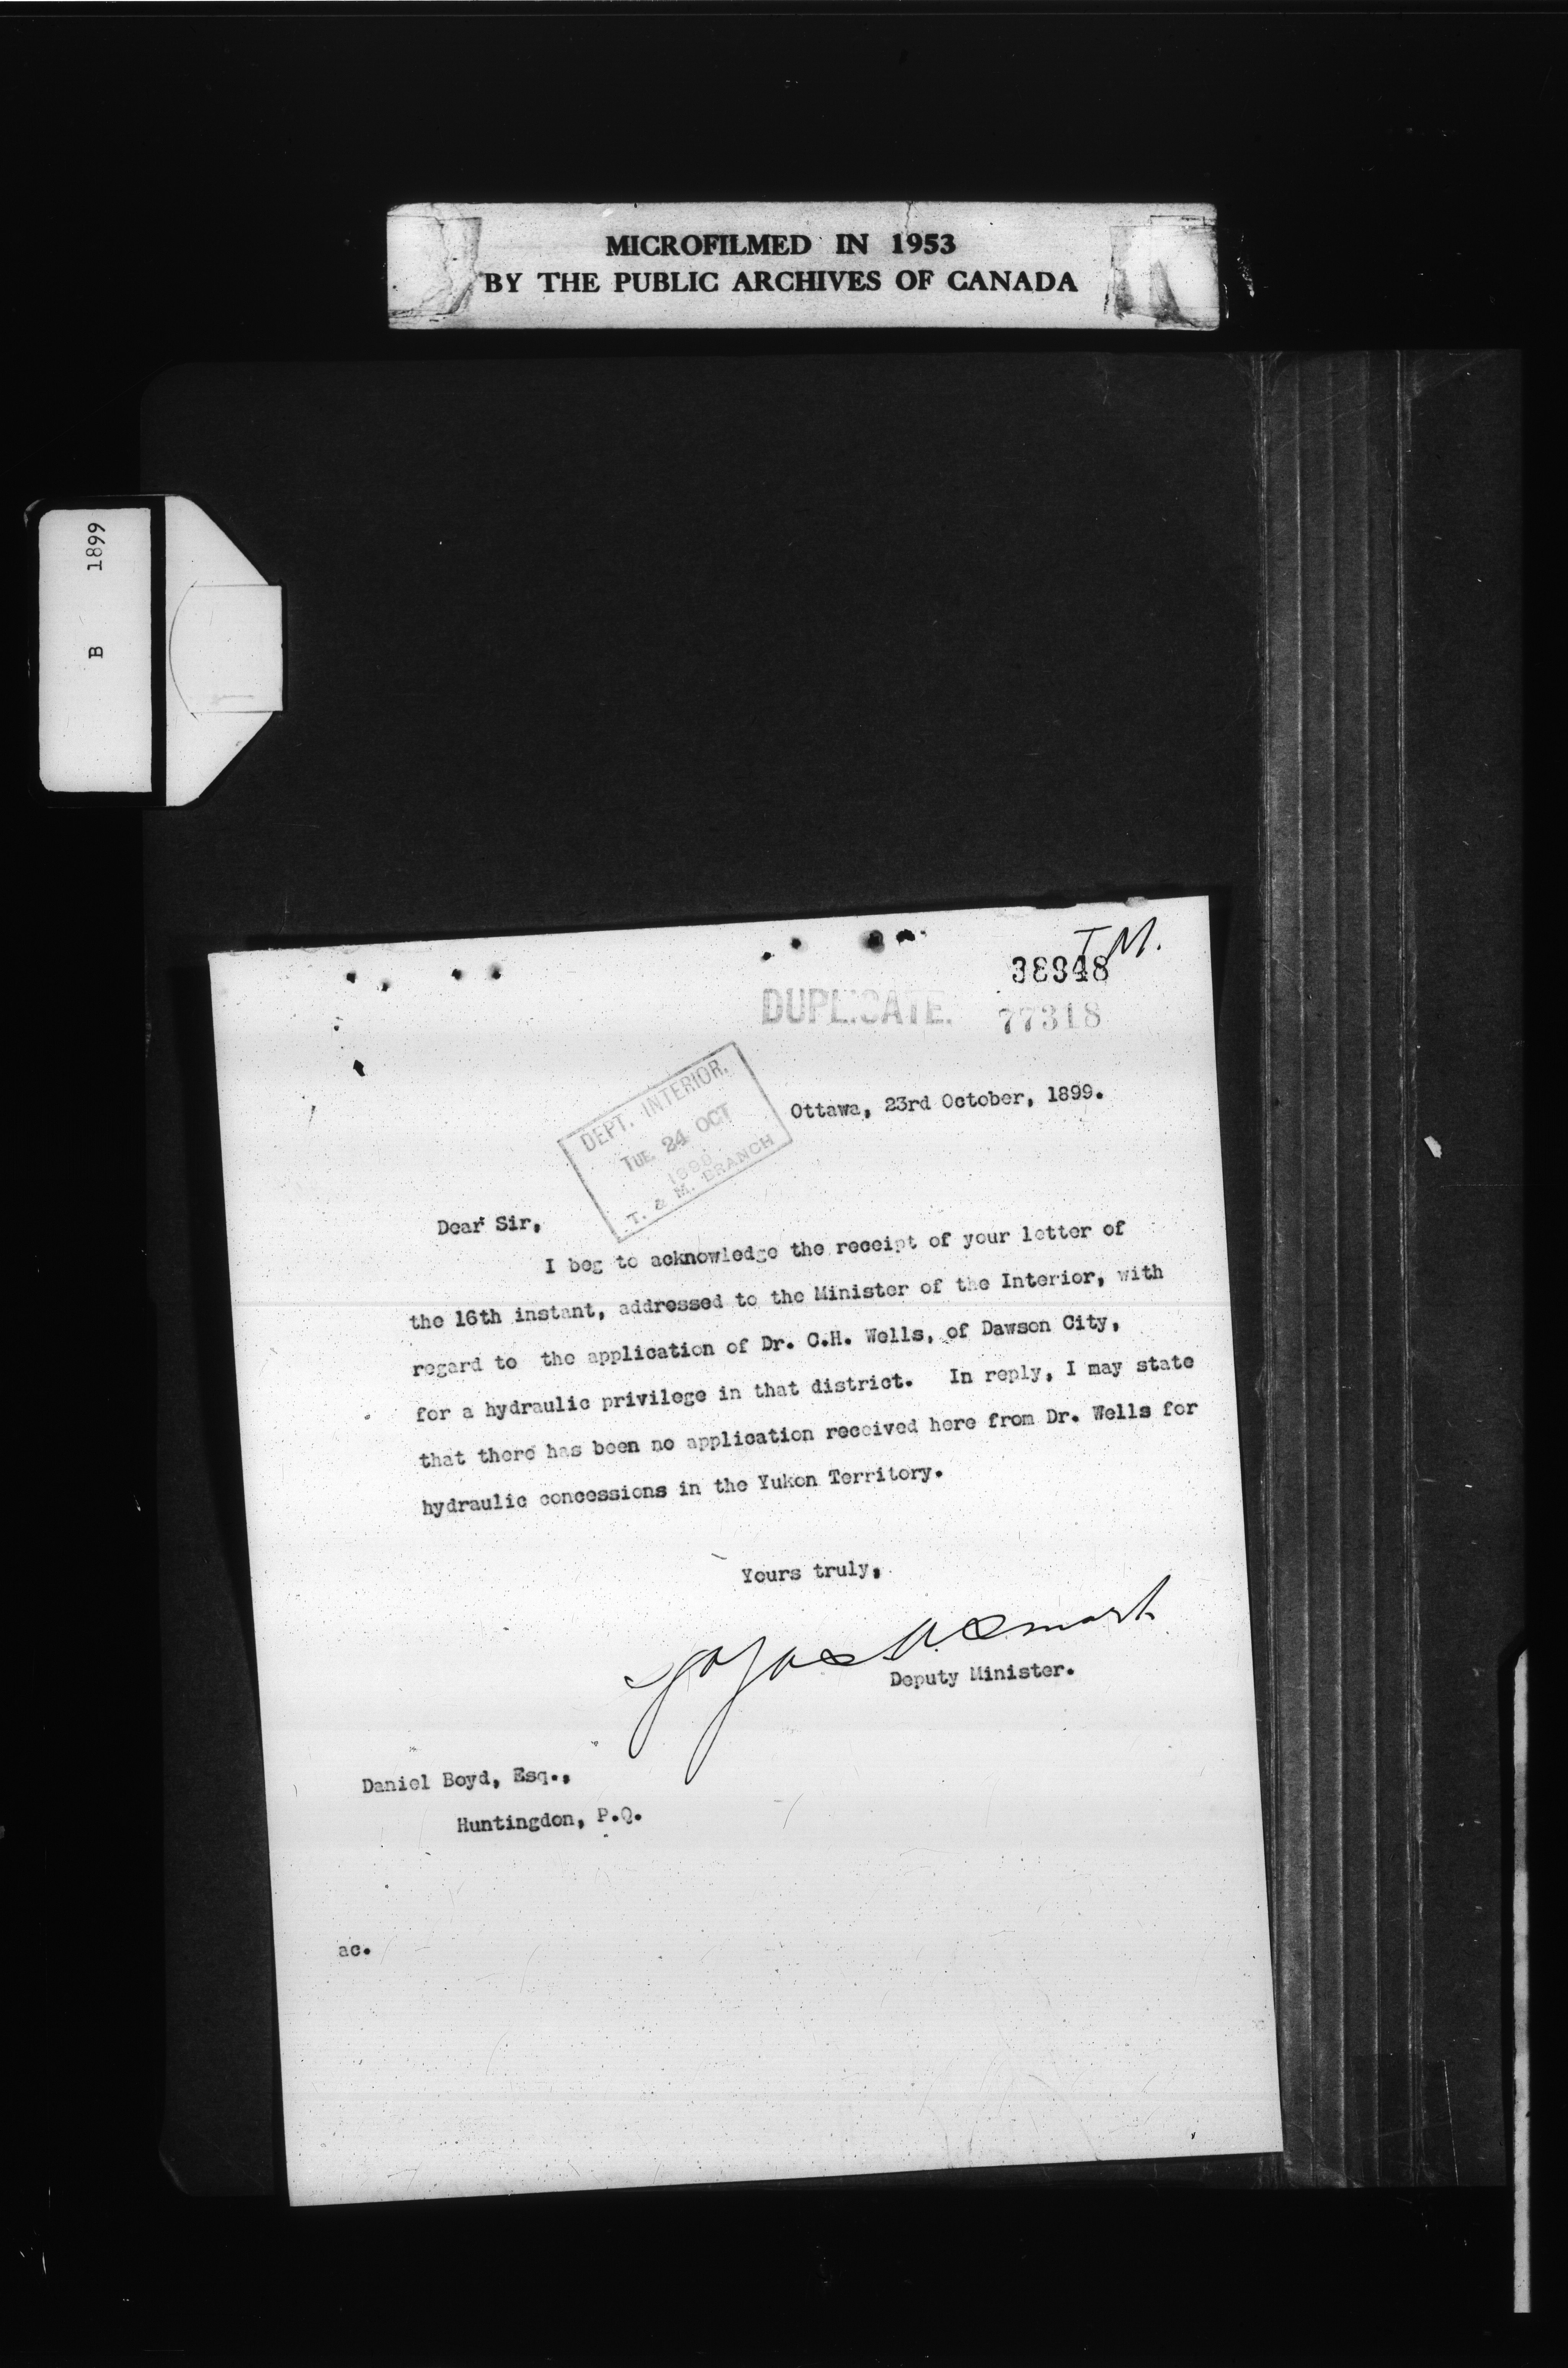 MICROFILMED IN 1953
BY THE PUBLIC ARCHIVES OF CANADA
B 1899
T.M.
38948
DUPLICATE.
77318
DEPT. INTERIOR.
TUE. 24 OCT
1899
T. & M. BRANCH
Ottawa, 23rd October, 1899.
Dear Sir,
I beg to acknowledge the receipt of your letter of
the 16th instant, addressed to the Minister of the Interior, with
regard to the application of Dr. C.H. Wells, of Dawson City,
for a hydraulic privilege in that district. In reply, I may state
that there has been no application received here from Dr. Wells for
hydraulic concessions in the Yukon Territory.
Yours truly,
Smart
Deputy Minister.
Daniel Boyd, Esq.,
Huntingdon, P.Q.
ac.